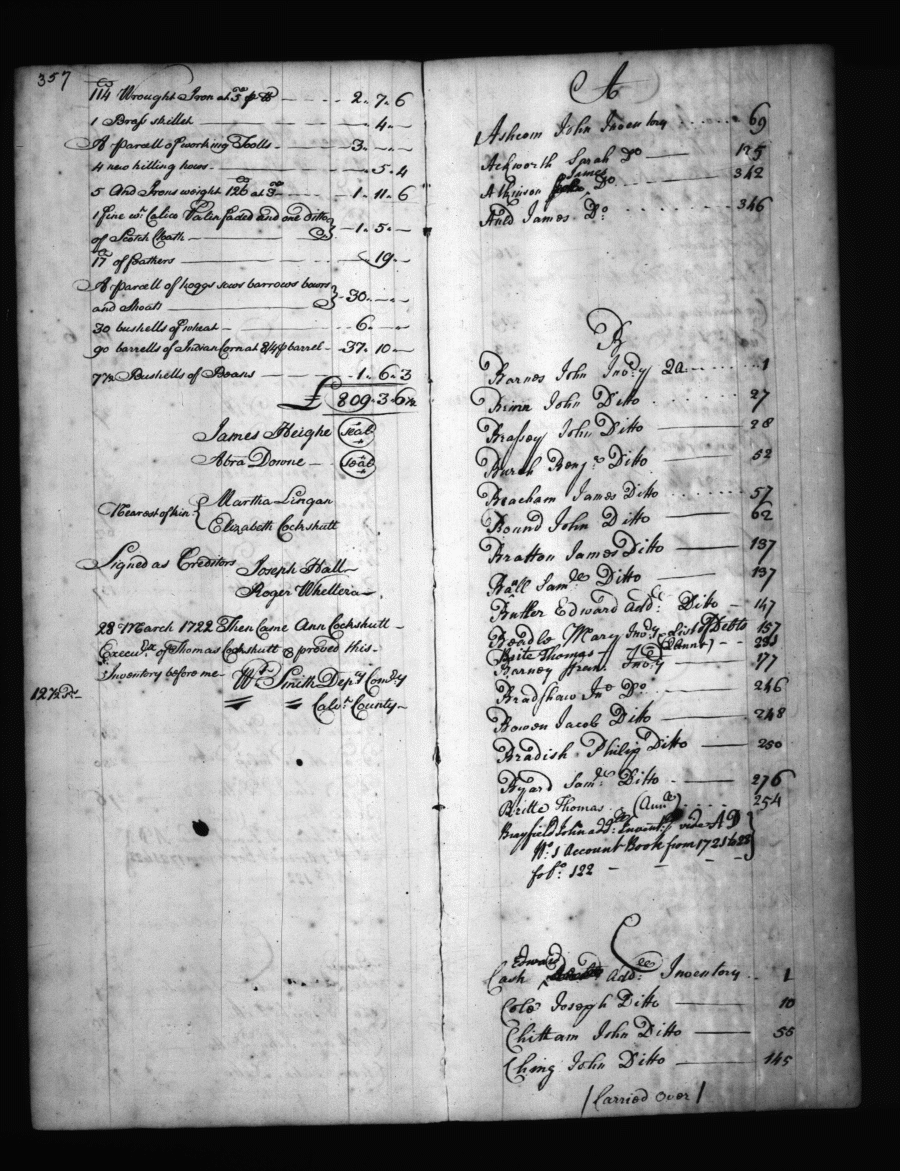 357
114 Wrought Iron at 5d p lb 2. 7. 6
1 Brass skillet - 4. -
A parcell of working Tools 3. - -
4 new hilling hows - 5. 4
5 And Irons weight 126 at 3d 1. 11. 6
1 fine wt. Calico Valen faded and one ditto
of Scotch Cloath 1. 5. -
17 of feathers - 19. -
A parcell of hoggs sows barrows boars
and Shoats 30. - -
30 bushells of wheat 6. - -
90 barrells of Indian Corn at 8/4 p barrel 37. 10. -
7½ Bushells of Beans 1. 6. 3
£ 809. 3. 6½
James Heighe (seal)
Abra Downe (seal)
Nearest of kin { Martha Lingan
Elizabeth Cockshutt
Signed as Creditors Joseph Hall
Roger Whellera
28 March 1722 Then Came Ann Cockshutt
Execux. of Thomas Cockshutt & proved this
Inventory before me Wm. Smith Depy Comry
Calvt. County
12½
A
Ashcom John Inventory 69
Ackworth Sarah Do 125
James
Atkinson Do 342
Auld James Do. 346
B
Barnes John Invy 2d 1
Binn John Ditto 27
Brassey John Ditto 28
Burch Benja. Ditto 52
Beacham James Ditto 57
Bound John Ditto 62
Bratton James Ditto 137
Ball Saml. Ditto 137
Butler Edward add: Ditto 147
Beadle Mary Invy. List of Debts 157
Brite Thomas
Barney fran. Invy 177
Bradshaw Jno Do 246
Bowen Jacob Ditto 248
Bradish Philip Ditto 250
Byard Saml. Ditto 276
Britte Thomas (Annl) 254
Brayfield John add: Inventy. vide AD
No. 1 Account Book from 1721 to 23
folo. 122
C
Edward
Cash add: Inventory 1
Cole Joseph Ditto 10
Chittam John Ditto 55
Ching John Ditto 145
/ Carried over /